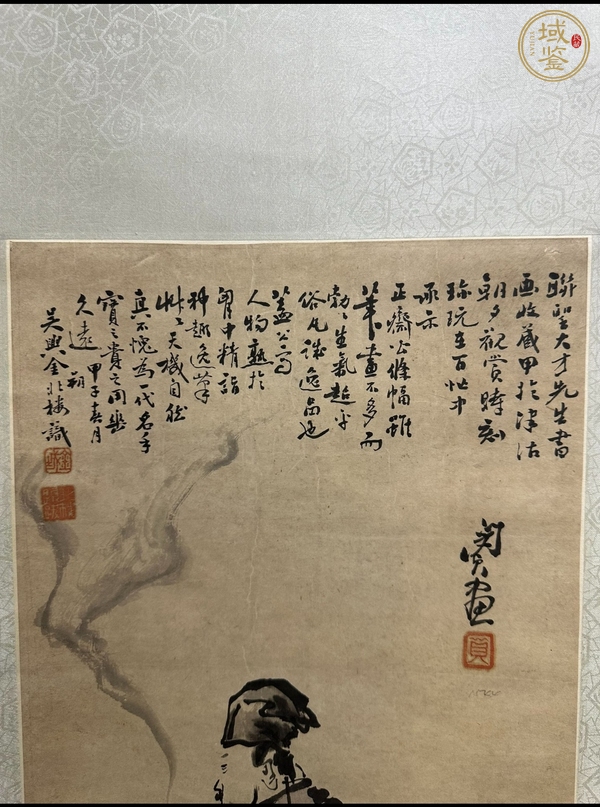 聯聖大才先生書
画收藏甲於津沽
朝夕觀賞時刻
珍玩在百忙中
承示
正齋公條幅雖
筆畫不多而
勃勃生氣超乎
俗凡誠逸品也
蓋公寫
人物
中精詣
神趣逸筆
艸艸天機自然
真不愧為一代名手
寶貴之同樂
久遠 甲子春月
朔
吳興金北樓識
閔貞畫
貞
域鉴
YUJIAN